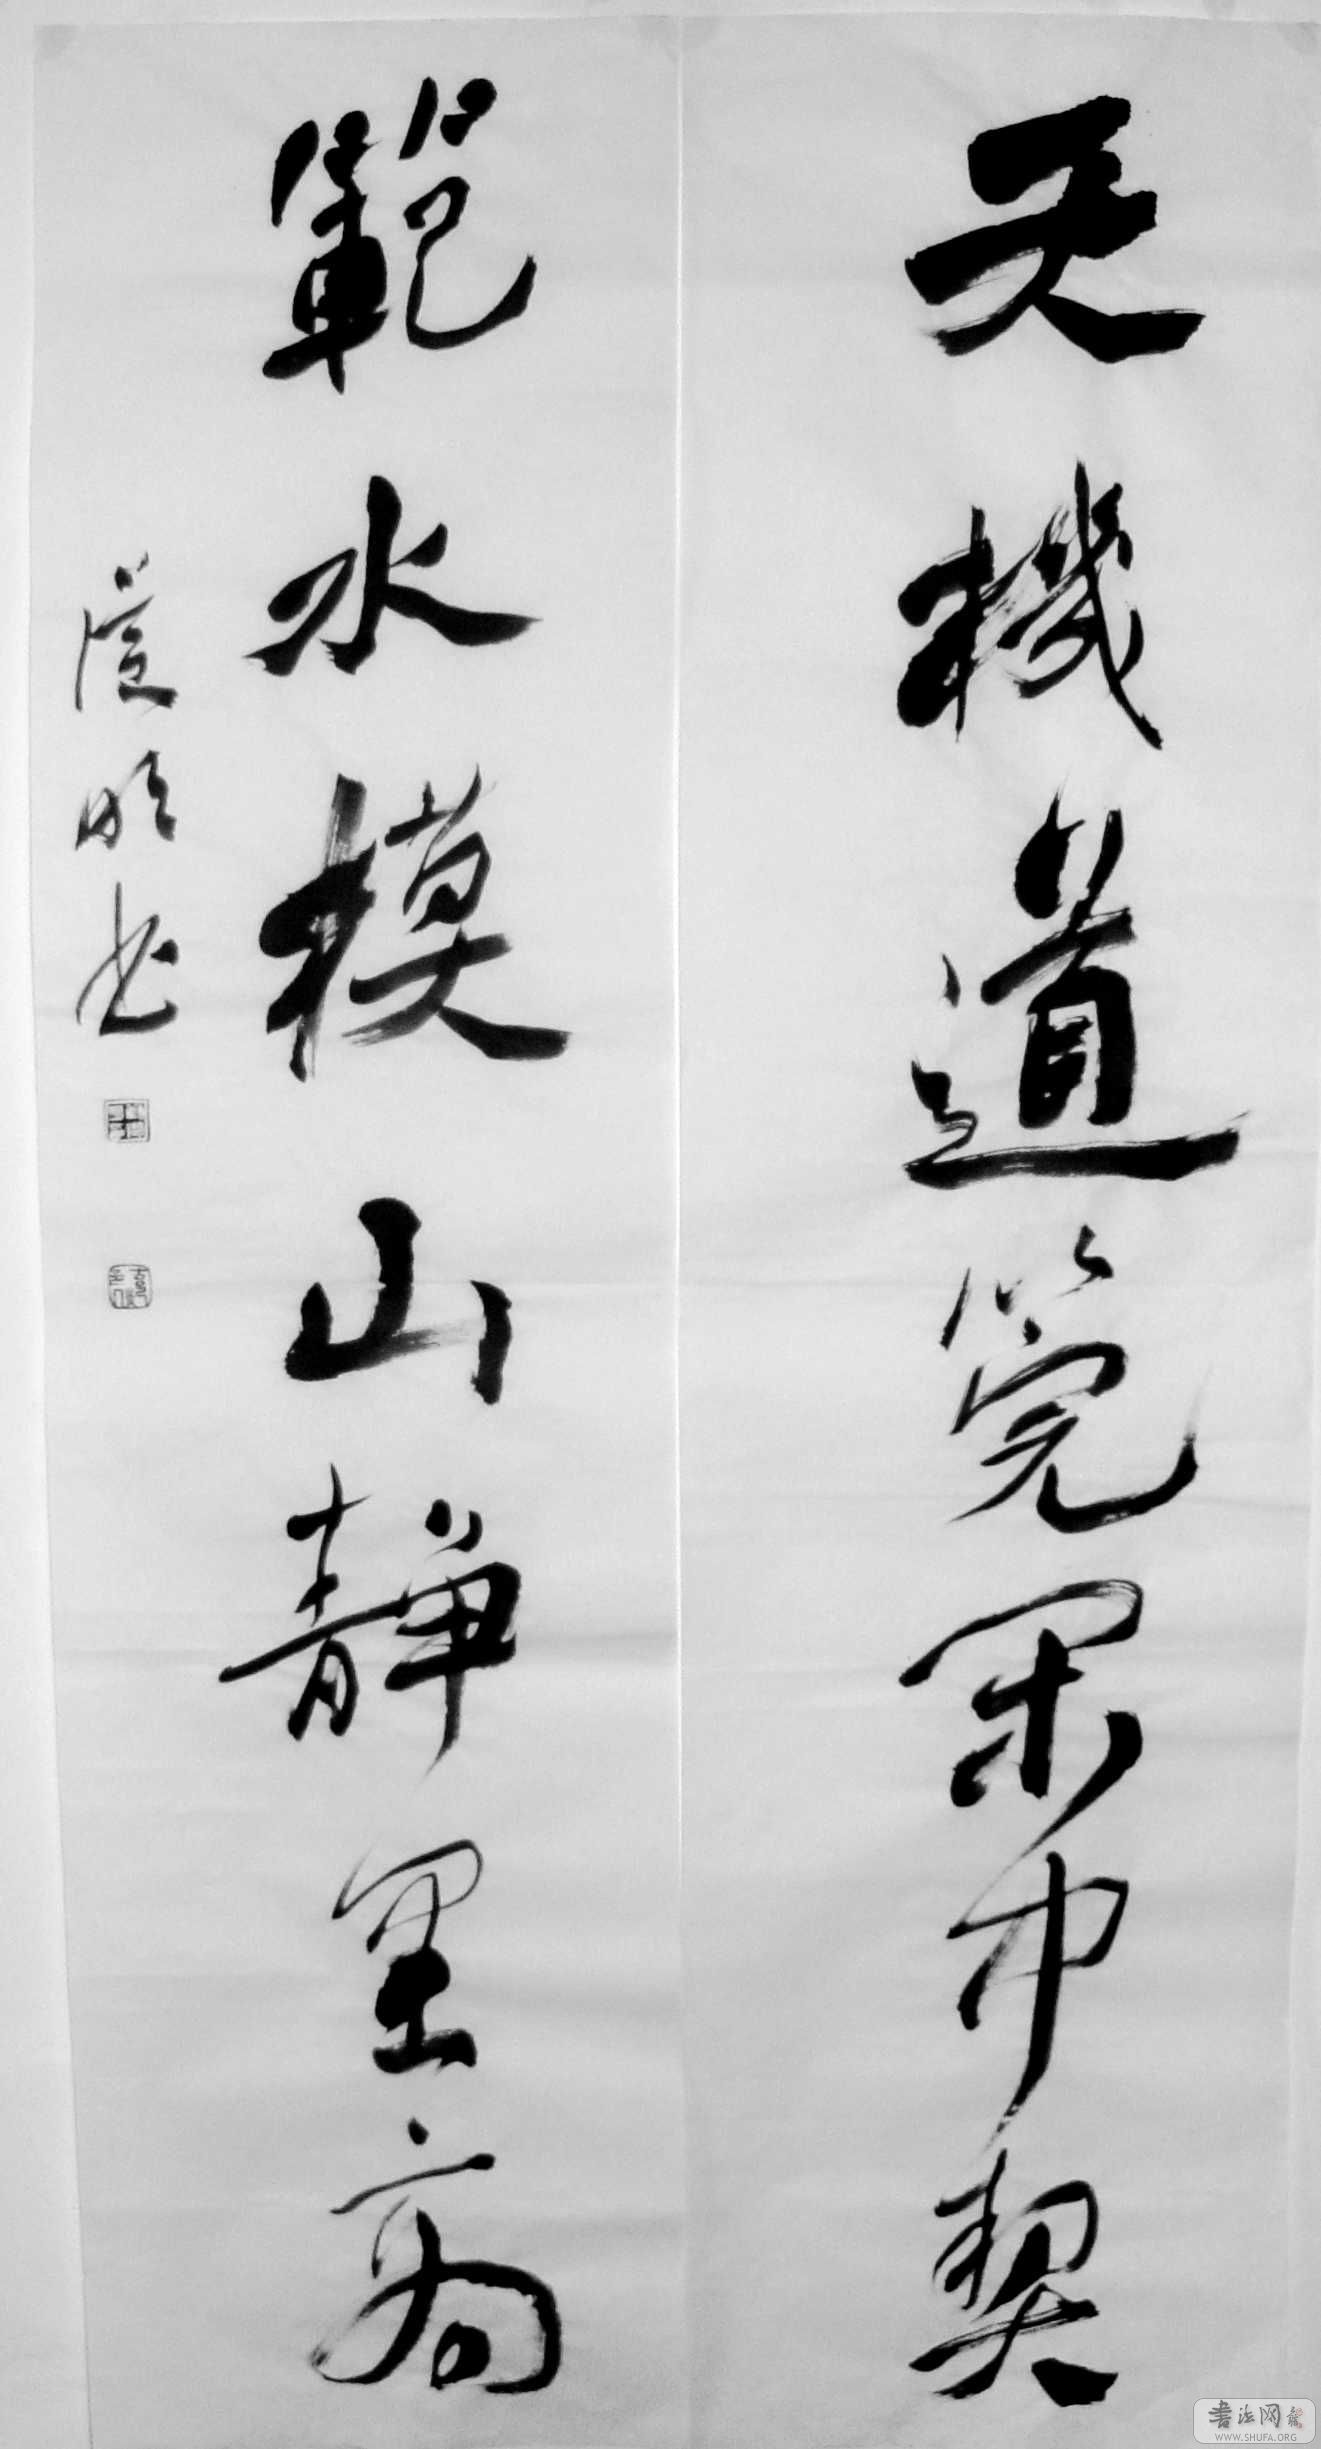 天機道筦閑中契
範水模山靜里高
書
書法网
WWW.SHUFA.ORG